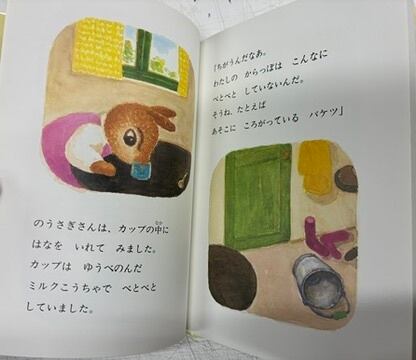 のうさぎさんは、カップの中に
はなを いれて みました。
カップは ゆうべのんだ
ミルクこうちゃで べとべと
していました。
「ちがうんだなあ。
わたしの からっぽは こんなに
べとべと していないんだ。
そうね、たとえば
あそこに ころがっている バケツ」